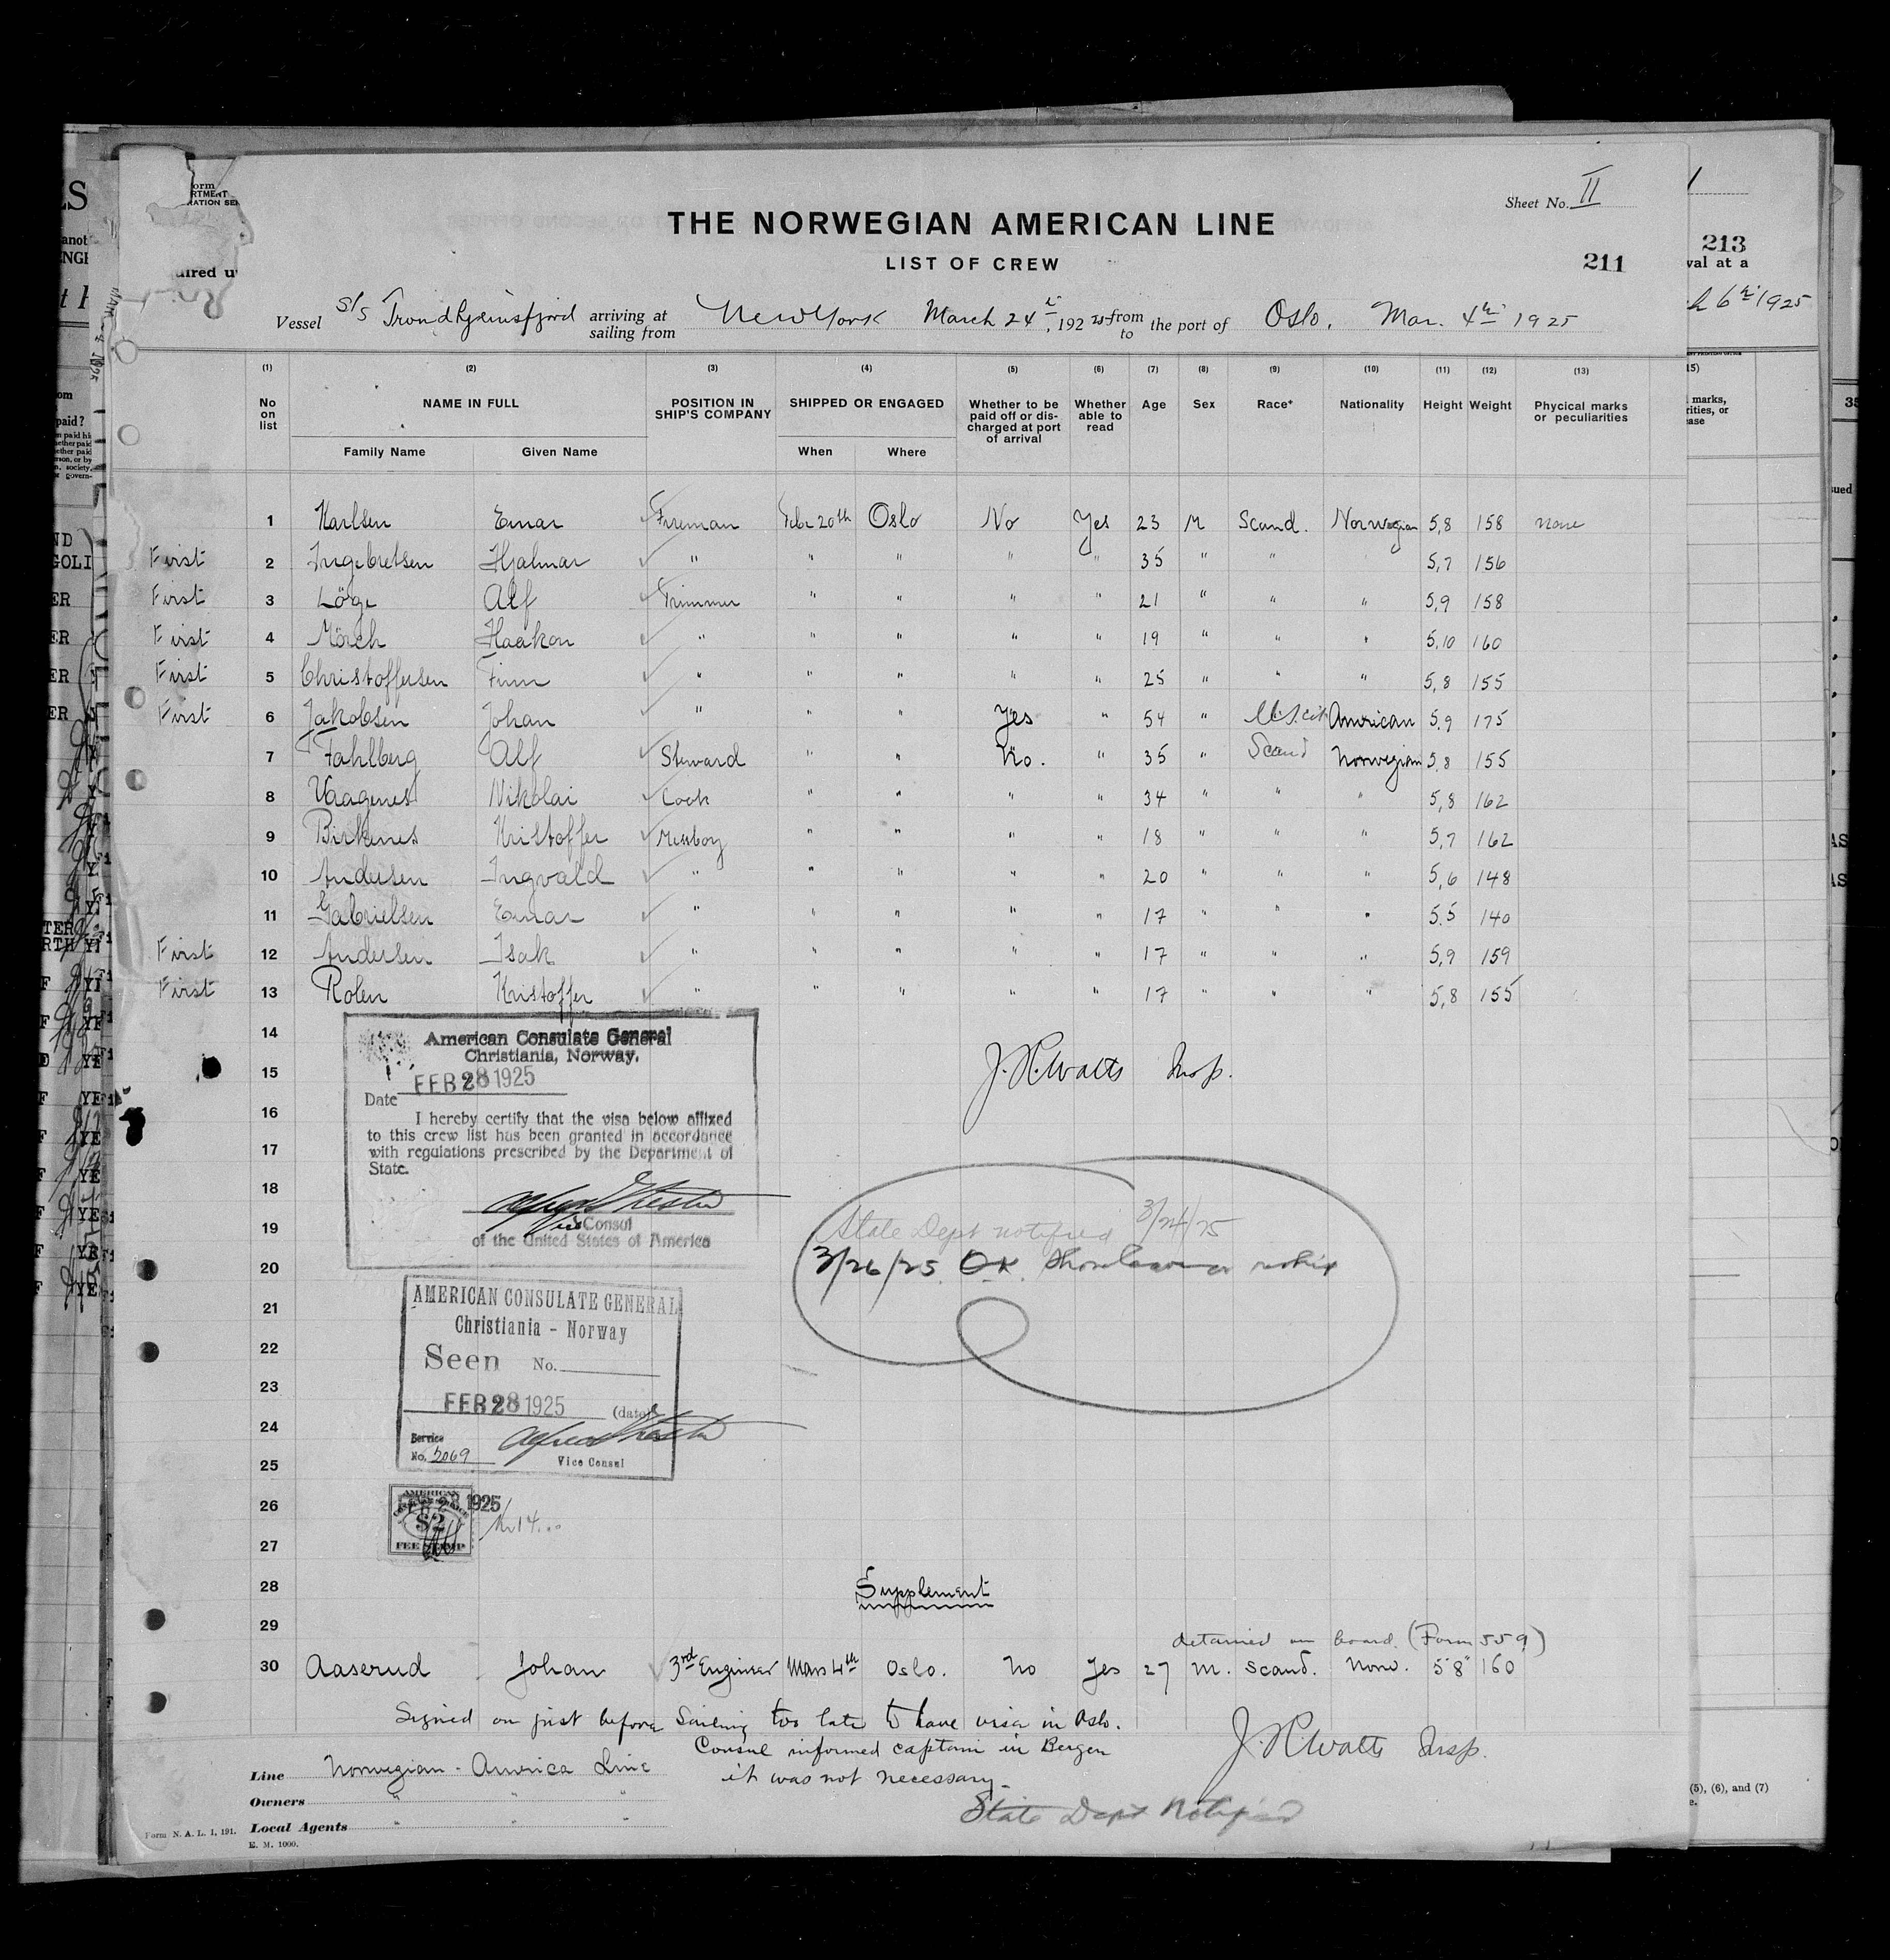 Sheet No. II
THE NORWEGIAN AMERICAN LINE
LIST OF CREW
211
213
Vessel S/S Trondhjemsfjord arriving at sailing from New York March 24th, 1925 from to the port of Oslo, Mar. 4th 1925
(1) (2) (3) (4) (5) (6) (7) (8) (9) (10) (11) (12) (13)
No on list NAME IN FULL POSITION IN SHIP'S COMPANY SHIPPED OR ENGAGED Whether to be paid off or discharged at port of arrival Whether able to read Age Sex Race* Nationality Height Weight Phycical marks or peculiarities
Family Name Given Name When Where
1 Karlsen Einar Fireman Febr 20th Oslo No Yes 23 M Scand. Norwegian 5,8 158 none
First 2 Ingebretsen Hjalmar " " " " " 35 " " 5,7 156
First 3 Löge Alf Trimmer " " " " 21 " " " 5,9 158
First 4 Mörch Haakon " " " " " 19 " " " 5,10 160
First 5 Christoffersen Finn " " " " " 25 " " " 5,8 155
First 6 Jakobsen Johan " " " Yes " 54 " U.S. cit. American 5,9 175
7 Fahlberg Alf Steward " " No. " 35 " Scand Norwegian 5,8 155
8 Vaagenes Nikolai Cook " " " " 34 " " " 5,8 162
9 Birkenes Kristoffer Messboy " " " " 18 " " " 5,7 162
10 Andersen Ingvald " " " " " 20 " " " 5,6 148
11 Gabrielsen Einar " " " " " 17 " " " 5.5 140
First 12 Andersen Isak " " " " " 17 " " " 5,9 159
First 13 Rolen Kristoffer " " " " " 17 " " " 5,8 155
14
15
16
17
18
19
20
21
22
23
24
25
26
27
28
29
American Consulate General
Christiania, Norway.
Date FEB 28 1925
I hereby certify that the visa below affixed
to this crew list has been granted in accordance
with regulations prescribed by the Department of
State.
Vice Consul
of the United States of America
J. H. Watts Insp.
State Dept notified 3/24/25
3/26/25 OK
AMERICAN CONSULATE GENERAL
Christiania - Norway
Seen No.
FEB 28 1925 (date)
Service
No. 2069
Vice Consul
AMERICAN
FEB 28 1925
$2
FEE STAMP
Supplement
detained on board. (Form 559)
30 Aaserud Johan 3rd Engineer Mars 4th Oslo. No Yes 27 M. Scand. Norw. 5'8" 160
Signed on just before Sailing too late to have visa in Oslo.
Consul informed captain in Bergen
it was not necessary.
J. H. Watts Insp.
State Dept Notified
Line Norwegian - America Line
Owners " " "
Local Agents " " "
Form N. A. L. 1, 191.
E. M. 1000.